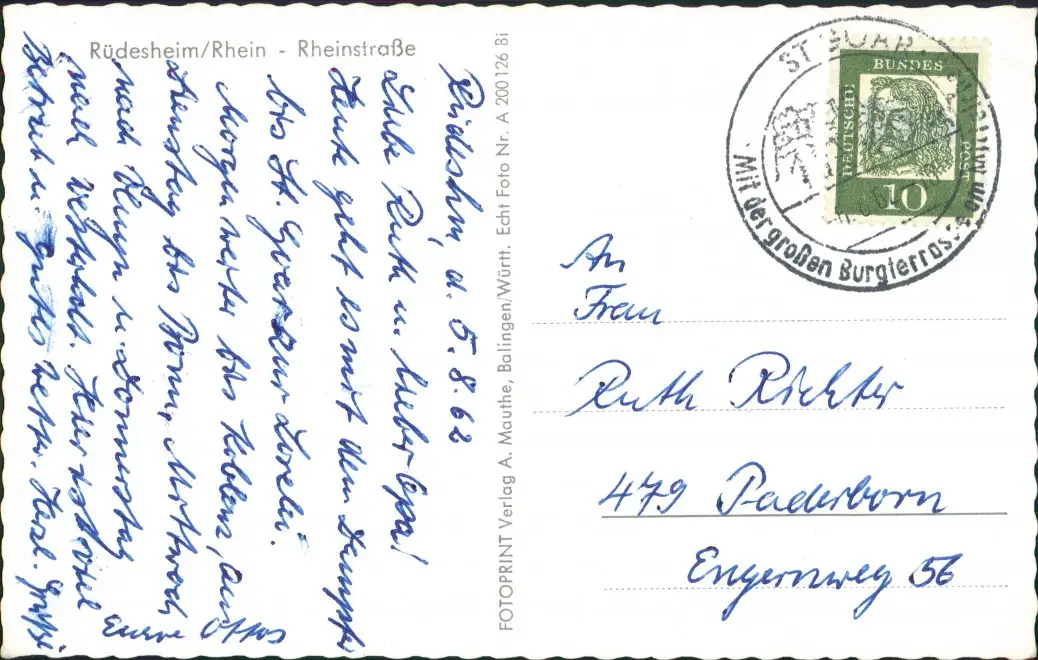 Rüdesheim/Rhein - Rheinstraße
Rüdeshm, d. 5.8.62
Liebe Ruth u. lieber Opa!
Heute geht es mit dem Dampfer
bis St. Goar zur Lorelei.
Morgen weiter bis Koblenz, am
Dienstag bis Bonn, Mittwoch
nach u. Donnerstag
nach Hier ist viel
Betrieb u. gutes Wetter. Herzl. Grüße
Eure Ottos
FOTOPRINT Verlag A. Mauthe, Balingen/Württ. Echt Foto Nr. A 200 126 Bi
ST. GOAR
Mit der großen Burgterras
DEUTSCHE
BUNDES
POST
10
An
Frau
Ruth Richter
479 Paderborn
Engernweg 56